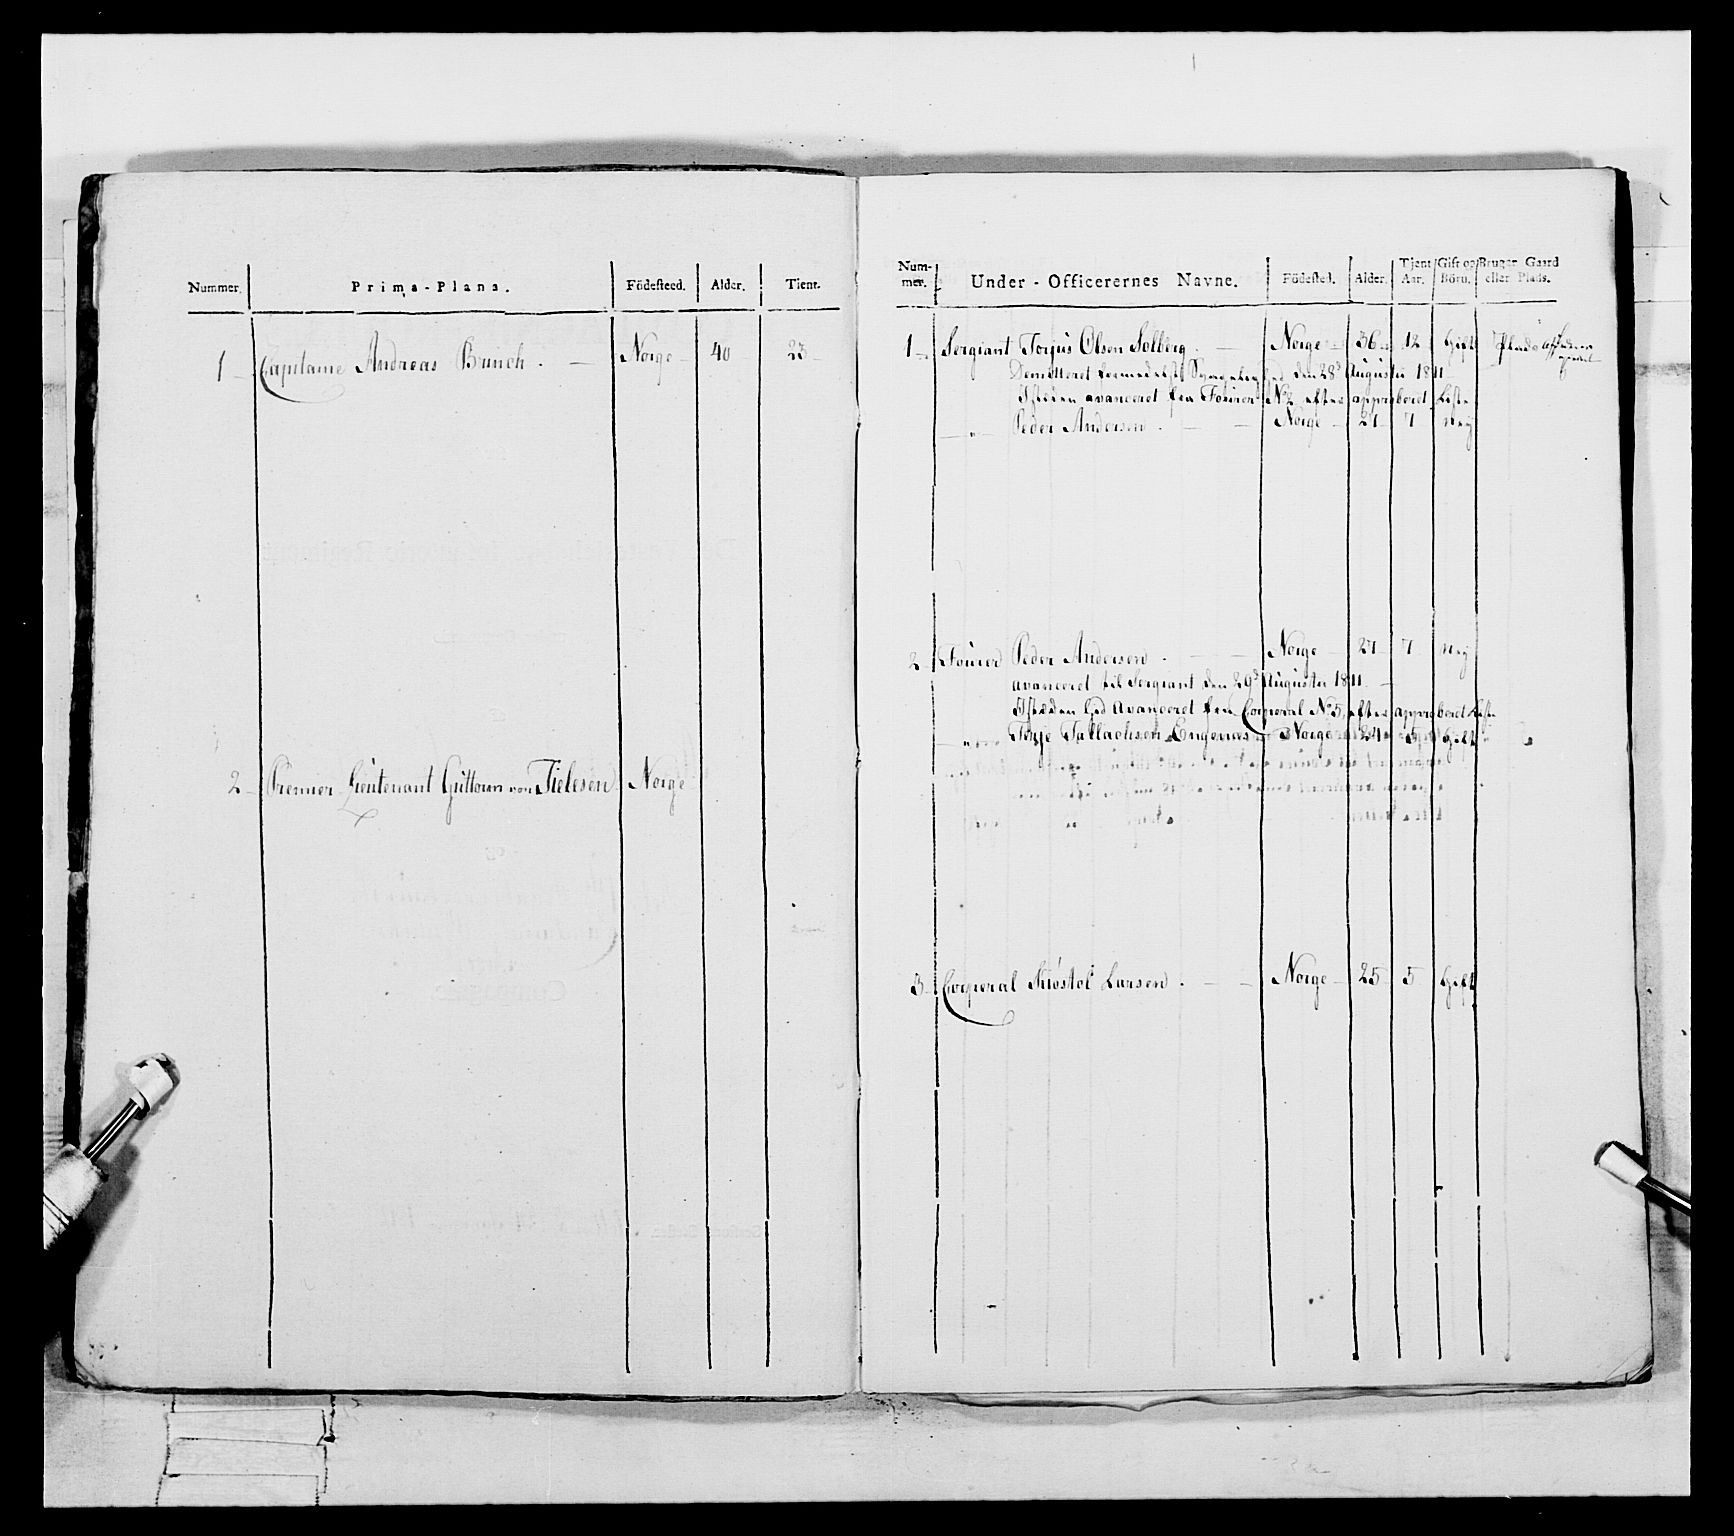 Nummer. Prima-Plana. Födesteed. Alder. Tient.
1 Capitaine Andreas Brinch. Norge 40 23
2 Premier Lieutenant Guttorm von Tielesen Norge
Num-mer. Under-Officerernes Navne. Födested. Alder. Tjent Aar. Gift og Börn. Bruger Gaard eller Plads.
1 Sergiant Torjus Olsen Solberg. Norge 36 12 Gift Plads
Demitteret formedelst Svagelighed den 28d Augustii 1811
Isteden avanceret fra Fourer No 2 efter approberet Liste
" Peder Andersen. Norge 27 7 nej
2 Fourer Peder Andersen. Norge 27 7 nej
avanceret til Sergiant den 29d Augustii 1811.
Isteden hed Avanceret fra Corporal No 5, efter approberet Liste
" Terje Tallachsen Engenæs Norge 24 5 Gift
3 Corporal Kiöstol Larsen. Norge 25 5 Gift